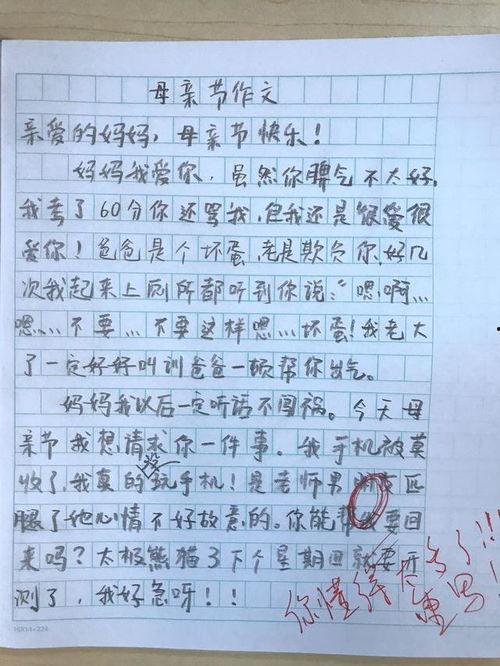 母亲节作文
亲爱的妈妈，母亲节快乐！
妈妈我爱你，虽然你脾气不太好，
我考了60分你还骂我，但我还是很爱很
爱你！爸爸是个坏蛋，老是欺负你，好几
次我起来上厕所都听到你说：“嗯，啊...
嗯...不要...不要这样嗯...坏蛋！我老大
了一定好好叫训爸爸一顿帮你出气。
妈妈我以后一定听话不闯祸。今天母
亲节我想请求你一件事。我手机被莫
收了，我真的没玩手机！是老师男朋友匹
腿了她心情不好故意的。你能帮我要回
来吗？太极熊猫3下个星期四就要开
测了，我好急呀！！
你懂得太多了！！！
重写！
HX14-224